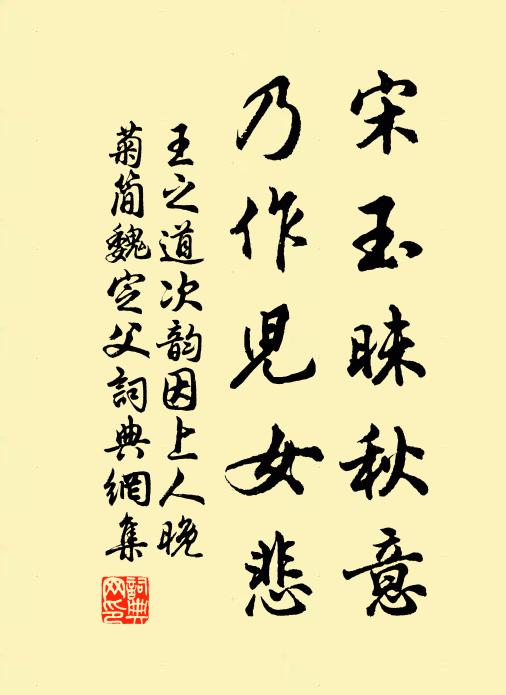 宋玉昧秋意
乃作児女悲
王之道次韵因上人晚
菊简魏定父詞典網集
詞典